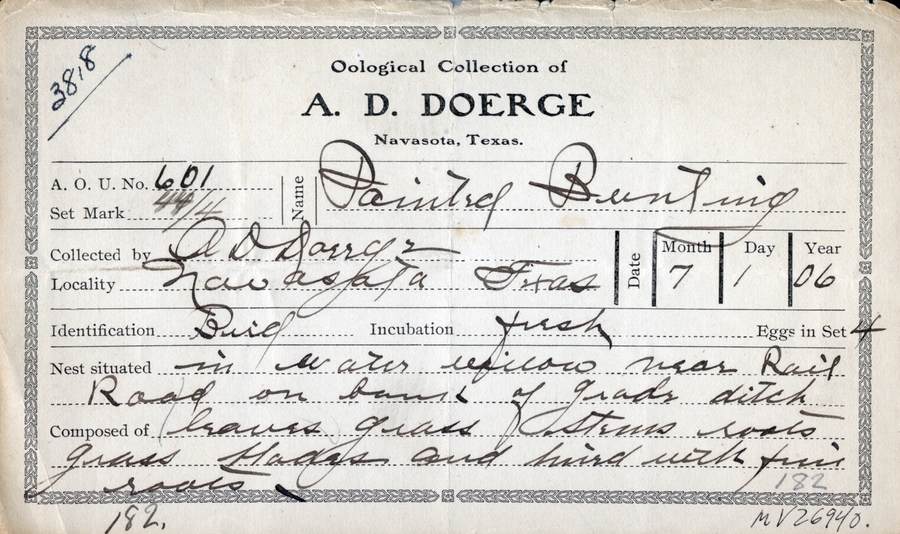 3818
Oological Collection of
A. D. DOERGE
Navasota, Texas.
A. O. U. No. 601
Set Mark 44/4
Name Painted Bunting
Collected by A D Doerge
Locality Navasota Texas
Date Month 7 Day 1 Year 06
Identification Bird Incubation fresh Eggs in Set 4
Nest situated in water willow near Rail
Road on bank of grade ditch
Composed of leaves grass stems roots
grass blades and lined with fine
roots
182
182.
MV26940.